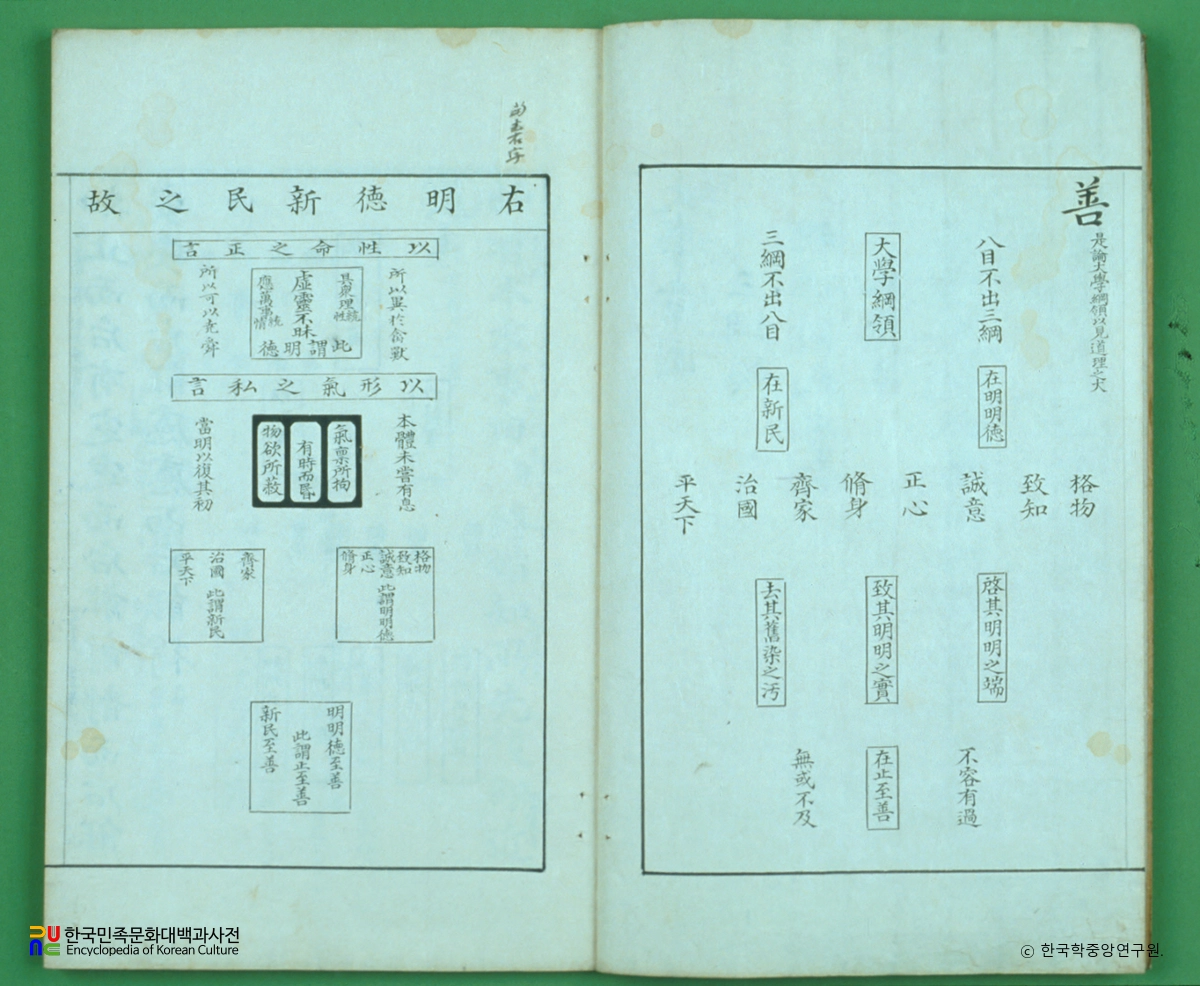 善
是論大學綱領以見道理之大
八目不出三綱
大學綱領
三綱不出八目
在明明德
在新民
格物
致知
誠意
正心
脩身
齊家
治國
平天下
啓其明明之端
致其明明之實
去其舊染之汚
不容有過
在止至善
無或不及
右明德新民之故
以性命之正言
所以異於禽獸
具衆理統性
虛靈不昧
應萬事統情
此謂明德
所以可以堯舜
以形氣之私言
本體未嘗有息
氣稟所拘
有時而昏
物欲所蔽
當明以復其初
格物
致知
誠意
正心
脩身
此謂明明德
齊家
治國
平天下
此謂新民
明明德至善
此謂止至善
新民至善
한국민족문화대백과사전
Encyclopedia of Korean Culture
ⓒ 한국학중앙연구원.